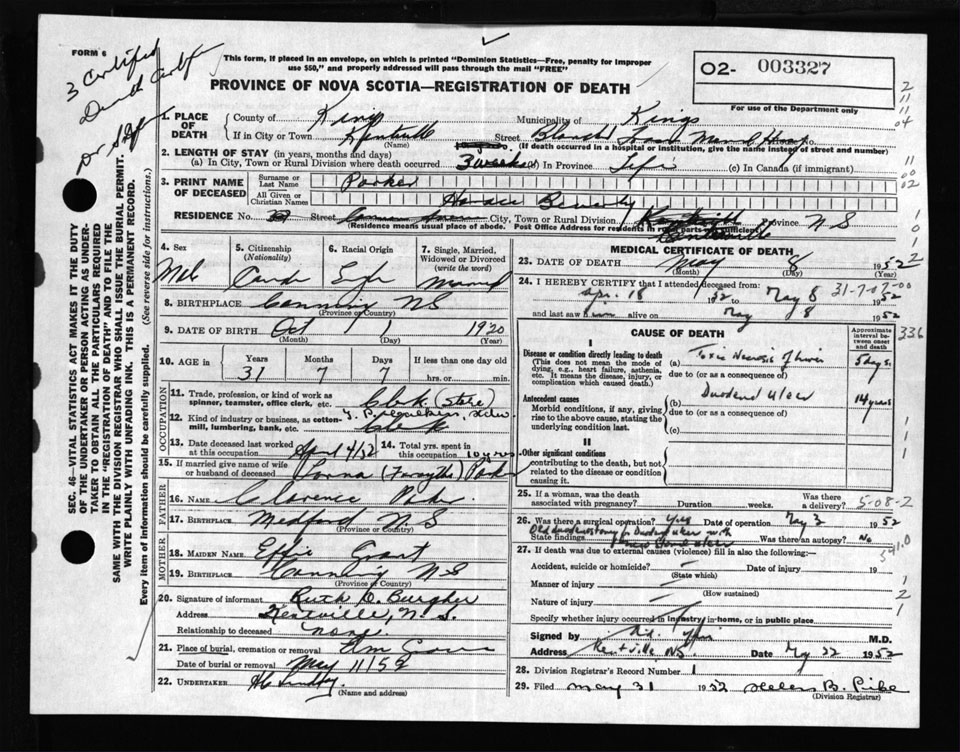 FORM 6
3 Certified
Death Certf
This form, if placed in an envelope, on which is printed "Dominion Statistics—Free, penalty for improper
use $50," and properly addressed will pass through the mail "FREE"
PROVINCE OF NOVA SCOTIA—REGISTRATION OF DEATH
02- 003327
For use of the Department only
1. PLACE OF DEATH
County of Kings Municipality of Kings
If in City or Town Kentville Street Blanch
(Name) (If death occurred in a hospital or institution, give the name instead of street and number)
2. LENGTH OF STAY (in years, months and days)
(a) In City, Town or Rural Division where death occurred 3 weeks (b) In Province Life (c) In Canada (if immigrant)
3. PRINT NAME OF DECEASED
Surname or Last Name Parker
All Given or Christian Names Horace Beverly
RESIDENCE No. Street City, Town or Rural Division Kentville Province N S
(Residence means usual place of abode. Post Office Address for residents in rural parts not sufficient)
4. Sex Male
5. Citizenship (Nationality)
6. Racial Origin
7. Single, Married, Widowed or Divorced (write the word) Married
8. BIRTHPLACE Canning NS
(Province or Country)
9. DATE OF BIRTH Oct 1 1920
(Month) (Day) (Year)
10. AGE in Years Months Days If less than one day old
31 7 7 hrs. or min.
OCCUPATION
11. Trade, profession, or kind of work as spinner, teamster, office clerk, etc. Clerk (store)
12. Kind of industry or business, as cotton-mill, lumbering, bank, etc. Clerk
13. Date deceased last worked at this occupation April 4/52
14. Total yrs. spent in this occupation 10 years
15. If married give name of wife or husband of deceased Lorna (Forsythe) Parker
FATHER
16. NAME Clarence Parker
17. BIRTHPLACE Medford N S
(Province or Country)
MOTHER
18. MAIDEN NAME Effie Grant
19. BIRTHPLACE Canning NS
(Province or Country)
20. Signature of informant Ruth D. Burgher
Address Kentville, N. S.
Relationship to deceased none
21. Place of burial, cremation or removal Elm Grove
Date of burial or removal May 11/52
22. UNDERTAKER
(Name and address)
MEDICAL CERTIFICATE OF DEATH
23. DATE OF DEATH May 8 1952
(Month) (Day)
24. I HEREBY CERTIFY that I attended deceased from:
Apr. 18 1952 to May 8 1952
and last saw him alive on May 8 1952
31-7-07-00
336
CAUSE OF DEATH
Approximate interval between onset and death
I
Disease or condition directly leading to death
(This does not mean the mode of dying, e.g., heart failure, asthenia, etc. It means the disease, injury, or complication which caused death.)
(a) Toxic Necrosis of liver 5 days
due to (or as a consequence of)
Antecedent causes
Morbid conditions, if any, giving rise to the above cause, stating the underlying condition last.
(b) Duodenal ulcer 14 years
due to (or as a consequence of)
(c)
II
Other significant conditions
contributing to the death, but not related to the disease or condition causing it.
25. If a woman, was the death associated with pregnancy? Duration weeks. Was there a delivery?
5-08-2
26. Was there a surgical operation? Yes Date of operation May 3 1952
State findings Was there an autopsy? No
541.0
27. If death was due to external causes (violence) fill in also the following:—
Accident, suicide or homicide? Date of injury 19
(State which)
Manner of injury
(How sustained)
Nature of injury
Specify whether injury occurred in industry, in home, or in public place
Signed by M.D.
Address Kentville NS Date May 22 1952
28. Division Registrar's Record Number 1
29. Filed May 31 1952 Helen B. Pike
(Division Registrar)
SEC. 46—VITAL STATISTICS ACT MAKES IT THE DUTY
OF THE UNDERTAKER OR PERSON ACTING AS UNDER-
TAKER TO OBTAIN ALL THE PARTICULARS REQUIRED
IN THE "REGISTRATION OF DEATH" AND TO FILE THE
SAME WITH THE DIVISION REGISTRAR WHO SHALL ISSUE THE BURIAL PERMIT.
WRITE PLAINLY WITH UNFADING INK. THIS IS A PERMANENT RECORD.
Every item of information should be carefully supplied. (See reverse side for instructions.)